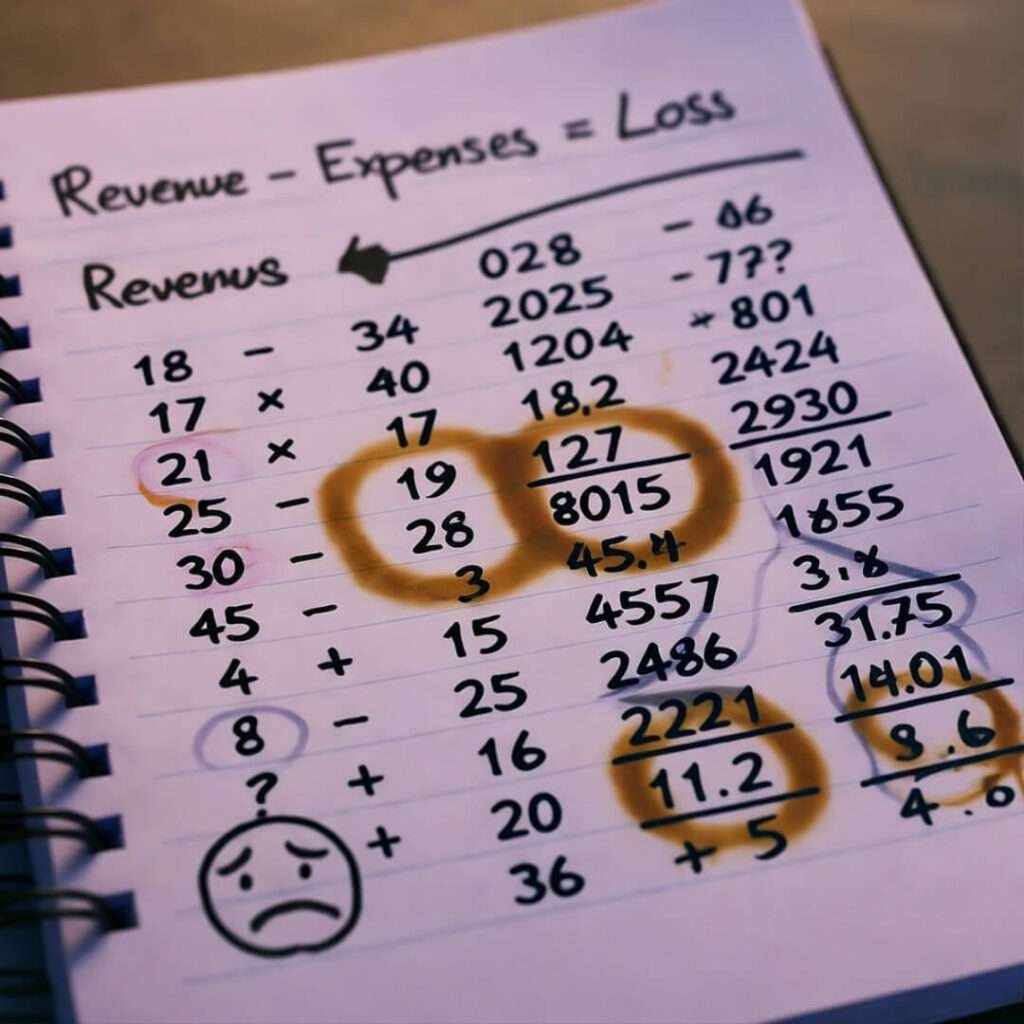 Revenue - Expenses = Loss
Revenus 028 -
18 - 34 2025 - 7??
17 × 40 1204 + 801
21 × 17 18.2 2424
25 - 19 127 2930
30 - 28 8015 1921
45 - 3 45.4
4 + 15 4557 3.8
8 - 25 2486 31.75
? + 16 2221 14.01
+ 20 11.2
36 + 5 4.0